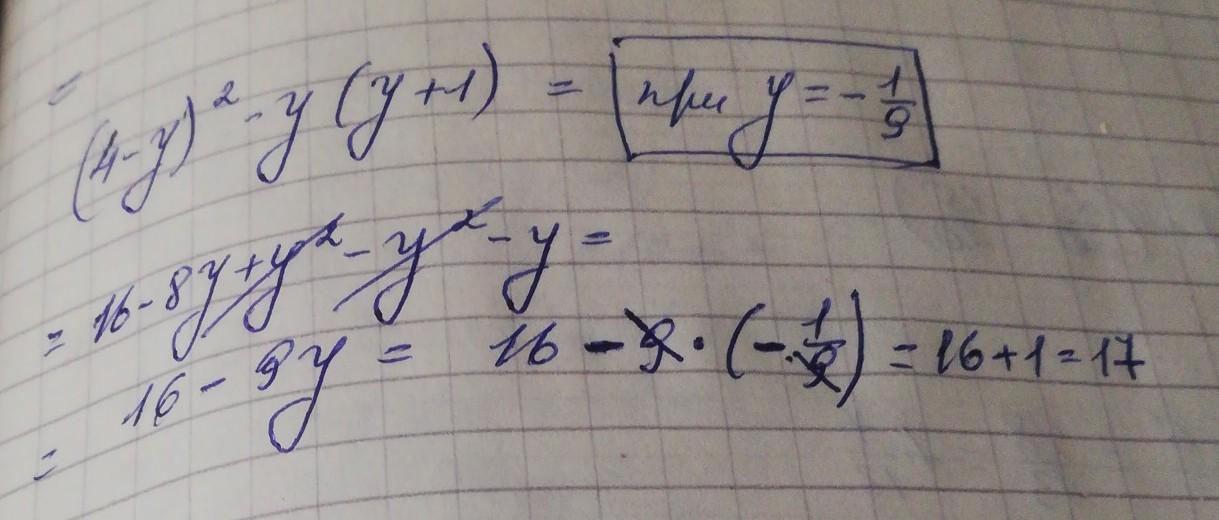 =
(4-y)² - y (y+1) = при y = - 1/9
= 16 - 8y + y² - y² - y =
= 16 - 9y = 16 - 9 · (- 1/9) = 16 + 1 = 17